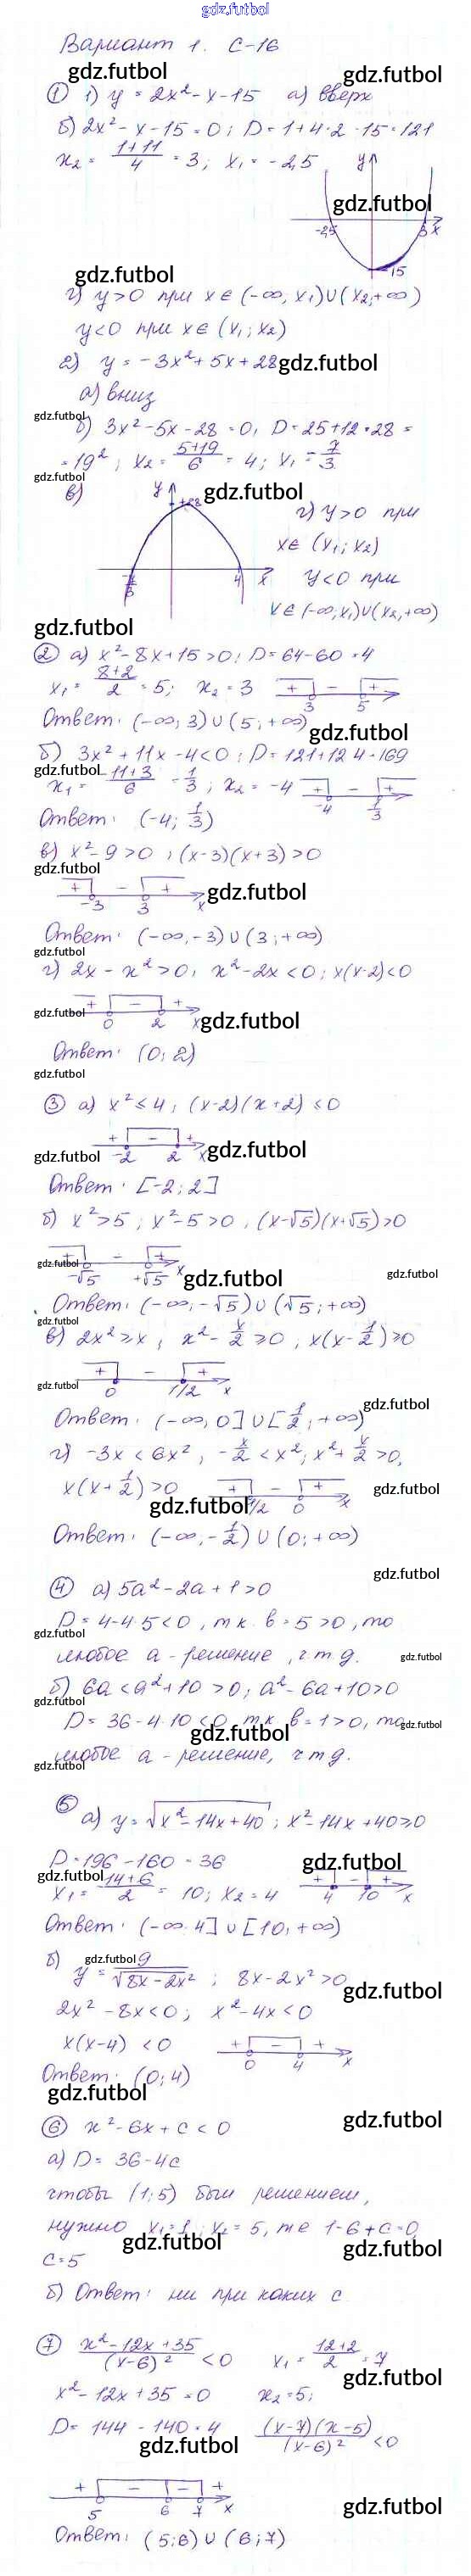 gdz.futbol
Вариант 1. С-16
gdz.futbol gdz.futbol
① 1) y = 2x² - x - 15 а) вверх
б) 2x² - x - 15 = 0; D = 1 + 4·2·15 = 121
x₂ = (1+11)/4 = 3; x₁ = -2,5
y
gdz.futbol
-2,5 3 x
-15
gdz.futbol
г) y > 0 при x ∈ (-∞, x₁) ∪ (x₂; +∞)
y < 0 при x ∈ (x₁; x₂)
2) y = -3x² + 5x + 28 gdz.futbol
а) вниз
gdz.futbol
б) 3x² - 5x - 28 = 0, D = 25 + 12·28 =
= 19²; x₂ = (5+19)/6 = 4; x₁ = -7/3
gdz.futbol
в) y gdz.futbol
28 г) y > 0 при
x ∈ (x₁; x₂)
-7/3 4 x y < 0 при
x ∈ (-∞, x₁) ∪ (x₂, +∞)
gdz.futbol
② а) x² - 8x + 15 > 0; D = 64 - 60 = 4
x₁ = (8+2)/2 = 5; x₂ = 3 + - + 3 5
Ответ: (-∞; 3) ∪ (5; +∞)
gdz.futbol
б) 3x² + 11x - 4 < 0; D = 121 + 12·4 = 169
gdz.futbol
x₁ = (-11+3)/6 = 1/3; x₂ = -4 + - + -4 1/3
Ответ: (-4; 1/3)
в) x² - 9 > 0; (x-3)(x+3) > 0
gdz.futbol
+ - + gdz.futbol
-3 3 x
Ответ: (-∞, -3) ∪ (3; +∞)
gdz.futbol
г) 2x - x² > 0, x² - 2x < 0; x(x-2) < 0
gdz.futbol + - +
0 2 x gdz.futbol
Ответ: (0; 2)
gdz.futbol
③ а) x² ≤ 4; (x-2)(x+2) ≤ 0
+ - +
gdz.futbol -2 2 x gdz.futbol
Ответ: [-2; 2]
б) x² > 5; x² - 5 > 0, (x-√5)(x+√5) > 0
+ - +
gdz.futbol
-√5 +√5 x gdz.futbol gdz.futbol
Ответ: (-∞, -√5) ∪ (√5; +∞)
gdz.futbol
в) 2x² ≥ x; x² - x/2 ≥ 0, x(x - 1/2) ≥ 0
+ - +
gdz.futbol 0 1/2 x
gdz.futbol
Ответ: (-∞, 0] ∪ [1/2; +∞)
г) -3x < 6x², -x/2 < x²; x² + x/2 > 0,
x(x + 1/2) > 0 + - + gdz.futbol
gdz.futbol 1/2 0 x
Ответ: (-∞, -1/2) ∪ (0; +∞)
gdz.futbol
④ а) 5a² - 2a + 1 > 0
D = 4 - 4·5 < 0, т.к. в = 5 > 0, то
gdz.futbol
любое a - решение, ч.т.д. gdz.futbol
б) 6a < a² + 10 > 0; a² - 6a + 10 > 0
gdz.futbol
D = 36 - 4·10 < 0, т.к. в = 1 > 0, то gdz.futbol
gdz.futbol
любое a - решение, ч.т.д.
gdz.futbol
⑤ а) y = √(x² - 14x + 40); x² - 14x + 40 ≥ 0
D = 196 - 160 = 36 gdz.futbol
gdz.futbol
x₁ = (14+6)/2 = 10; x₂ = 4 + - + 4 10 x
Ответ: (-∞ 4] ∪ [10, +∞)
б) gdz.futbol
y = 9/√(8x - 2x²); 8x - 2x² > 0
gdz.futbol
2x² - 8x < 0; x² - 4x < 0
x(x-4) < 0 + - + 0 4 x
Ответ: (0; 4)
gdz.futbol
⑥ x² - 6x + c < 0 gdz.futbol
а) D = 36 - 4c
чтобы (1; 5) был решением,
нужно x₁ = 1, x₂ = 5, т.е 1 - 6 + c = 0
gdz.futbol gdz.futbol
c = 5
б) Ответ: ни при каких c
⑦ (x² - 12x + 35)/(x-6)² < 0 x₁ = (12+2)/2 = 7
gdz.futbol
x² - 12x + 35 = 0 x₂ = 5;
D = 144 - 140 = 4 (x-7)(x-5)/(x-6)² < 0
gdz.futbol
+ - - +
5 6 7 x gdz.futbol
Ответ: (5; 6) ∪ (6; 7)